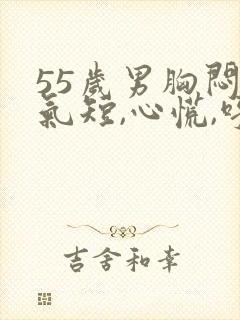 55歲男胸悶
氣短,心慌,
吉舍和幸